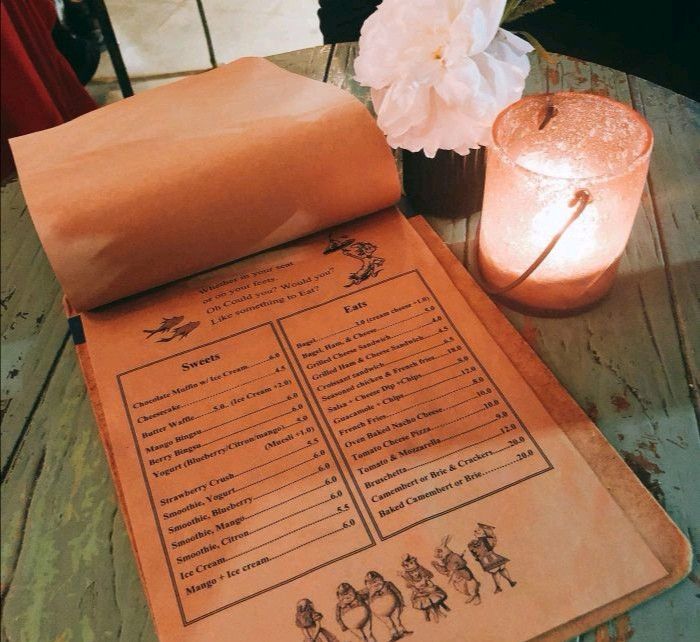 Whether in your seat
or on your feets.
Oh Could you? Would you?
Like something to Eat?
Sweets
Chocolate Muffin w/ Ice Cream 6.0
Cheesecake 4.5
Butter Waffle 5.0 (Ice Cream +2.0)
Mango Bingsu 6.0
Berry Bingsu 6.0
Yogurt (Blueberry/Citron/mango) 5.0
(Muesli +1.0)
Strawberry Crush 5.5
Smoothie, Yogurt 6.0
Smoothie, Blueberry 6.0
Smoothie, Mango 6.0
Smoothie, Citron 6.0
Ice Cream 5.5
Mango + Ice cream 6.0
Eats
Bagel 3.0 (cream cheese +1.0)
Bagel, Ham, & Cheese
Grilled Cheese Sandwich
Grilled Ham & Cheese Sandwich
Croissant sandwich
Seasoned chicken & French fries
Salsa + Cheese Dip +Chips
Guacamole + Chips 12.0
French Fries 8.0
Oven Baked Nacho Cheese 10.0
Tomato Cheese Pizza 10.0
Tomato & Mozzarella 9.0
Bruschetta 12.0
Camembert or Brie & Crackers 20.0
Baked Camembert or Brie 20.0